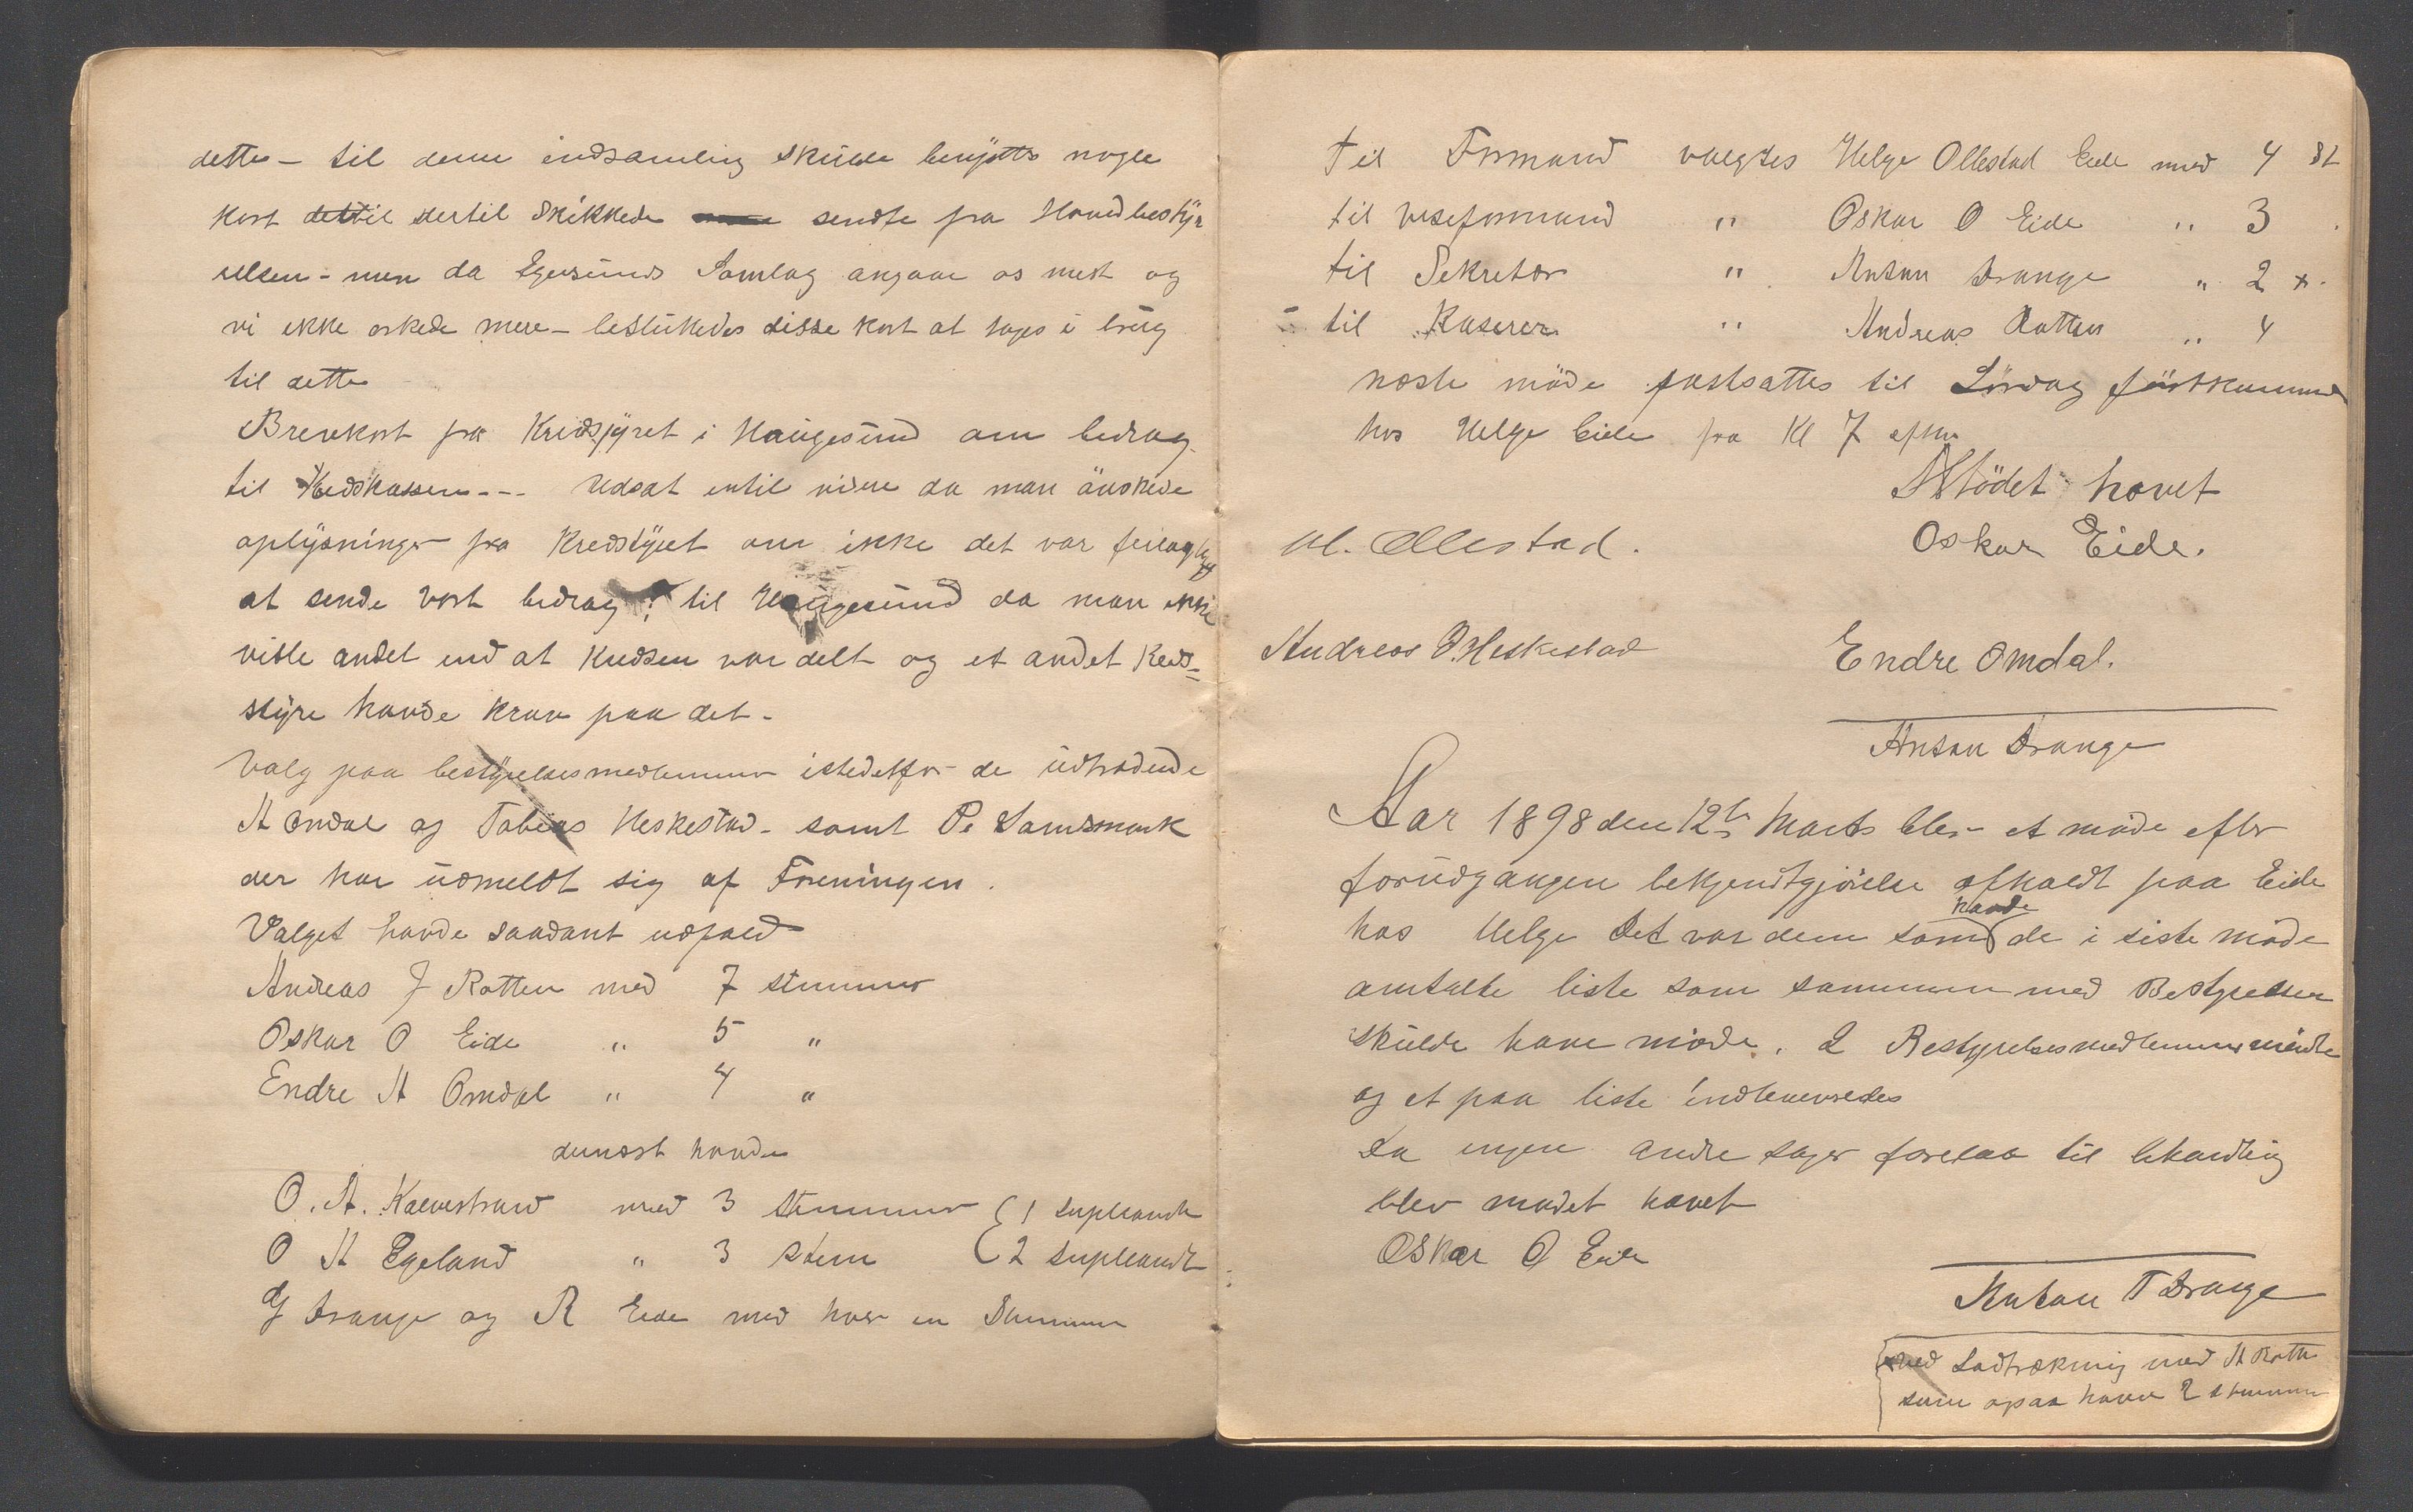 dette – til denne indsamling skulde benyttes nogle
kort dettil dertil skikkede sendte fra Hovedbestyr
relsen – men da Egersunds Samlag angaar os mest og
vi ikke orkede mere – besluttedes disse kort at tages i brug
til dette
Brevkort fra Kredsstyret i Haugesund om bedrag
til Kredskassen --- Udsat intil videre da man önskede
oplysninger fra Kredsstyret om ikke det var feilagtig
at sende vort bedrag til Haugesund da man ikke
viste andet end at Kredsen var delt og et andet Kreds-
styre havde krav paa det -
Valg paa bestyrelsesmedlemmer istedetfor de udtrædende
A Omdal og Tobias Heskestad - samt P. Landsmark
der har udmeldt sig af Foreningen.
Valget havde saadant udfald
Andreas J Rotten med 7 stemmer
Oskar O Eide " 5 "
Endre A Omdal " 4 "
dernæst havde
O. A. med 3 stemmer { 1 supleandt
O A Egeland " 3 stem { 2 supleandt
G Drange og R Eide med hver en Stemme
til Formand valgtes Helge Ollestad Eide med 4 st
til viseformand " Oskar O Eide " 3
til Sekretær " Anton Drange " 2 x.
til Kaserer " Andreas Rotten " 4
næste möde fastsattes til Lördag förstkommend
hos Helge Eide fra Kl 7 efter
Mödet hævet
H. Ollestad. Oskar Eide.
Andreas O. Heskestad Endre Omdal.
Anton Drange
Aar 1898 den 12te Marts blev et möde efter
forudgangen bekjendtgjörelse afholdt paa Eide
havde
hos Helge Det var dem som de i siste möde
omtalte liste som sammen med Bestyrelsen
skulde have möde. 2 Bestyrelsesmedlemmer mödte
og et par liste indleveredes
Da ingen andre sager forelaa til behandling
blev mödet hævet
Oskar O Eide
Anton T Drange
x ved Lodtrækning med A Rotten
som ogsaa havde 2 stemmer